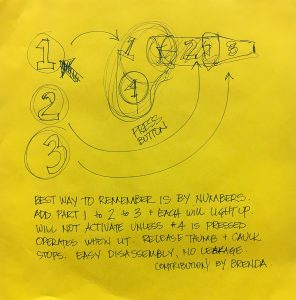 1
1 2 3
4
2
PRESS
BUTTON
3
BEST WAY TO REMEMBER IS BY NUMBERS.
ADD PART 1 to 2 to 3 + EACH WILL LIGHT UP.
WILL NOT ACTIVATE UNLESS #4 IS PRESSED
OPERATES WHEN LIT. RELEASE THUMB + CAULK
STOPS. EASY DISASSEMBLY, NO LEAKAGE.
CONTRIBUTION BY BRENDA